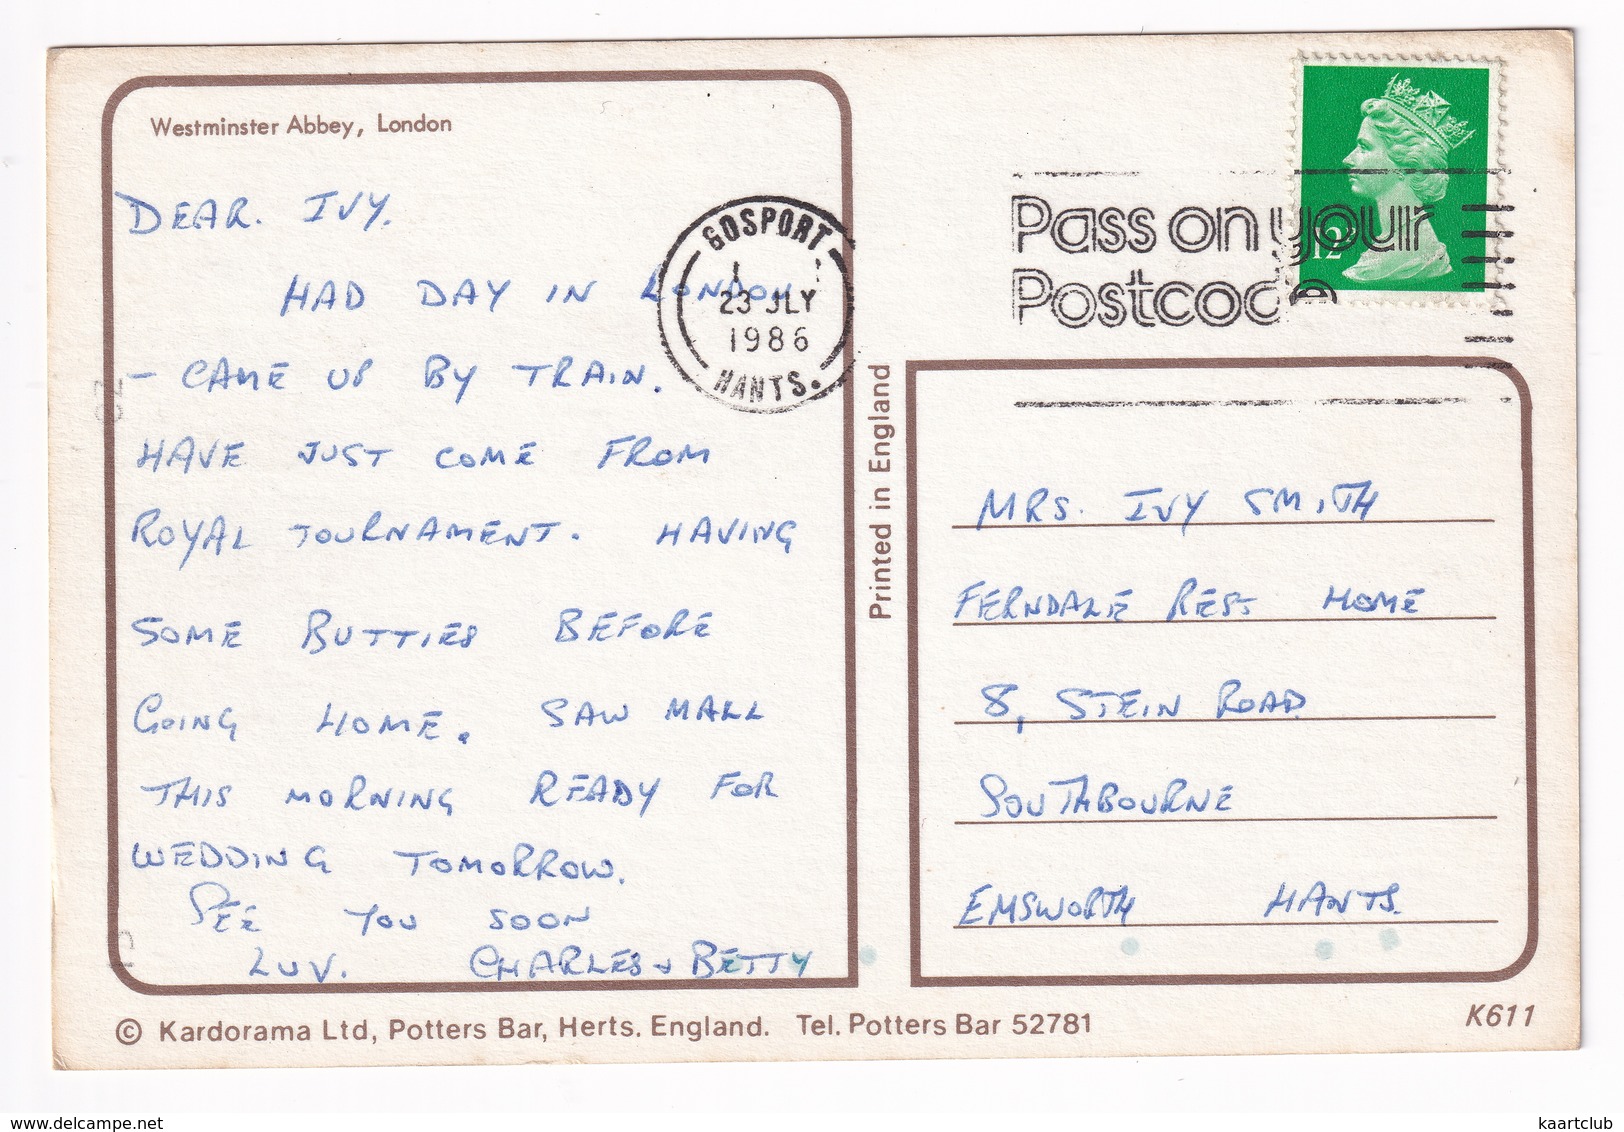 Westminster Abbey, London
DEAR. IVY.
HAD DAY IN LONDON
- CAME UP BY TRAIN.
HAVE JUST COME FROM
ROYAL TOURNAMENT. HAVING
SOME BUTTIES BEFORE
GOING HOME. SAW MALL
THIS MORNING READY FOR
WEDDING TOMORROW.
SEE YOU SOON
LUV. CHARLES + BETTY
GOSPORT
23 JLY
1986
HANTS.
Pass on your
Postcode
12
Printed in England
MRS. IVY SMITH
FERNDALE REST HOME
8, STEIN ROAD
SOUTHBOURNE
EMSWORTH HANTS.
© Kardorama Ltd, Potters Bar, Herts. England. Tel. Potters Bar 52781
K611
kaartclub